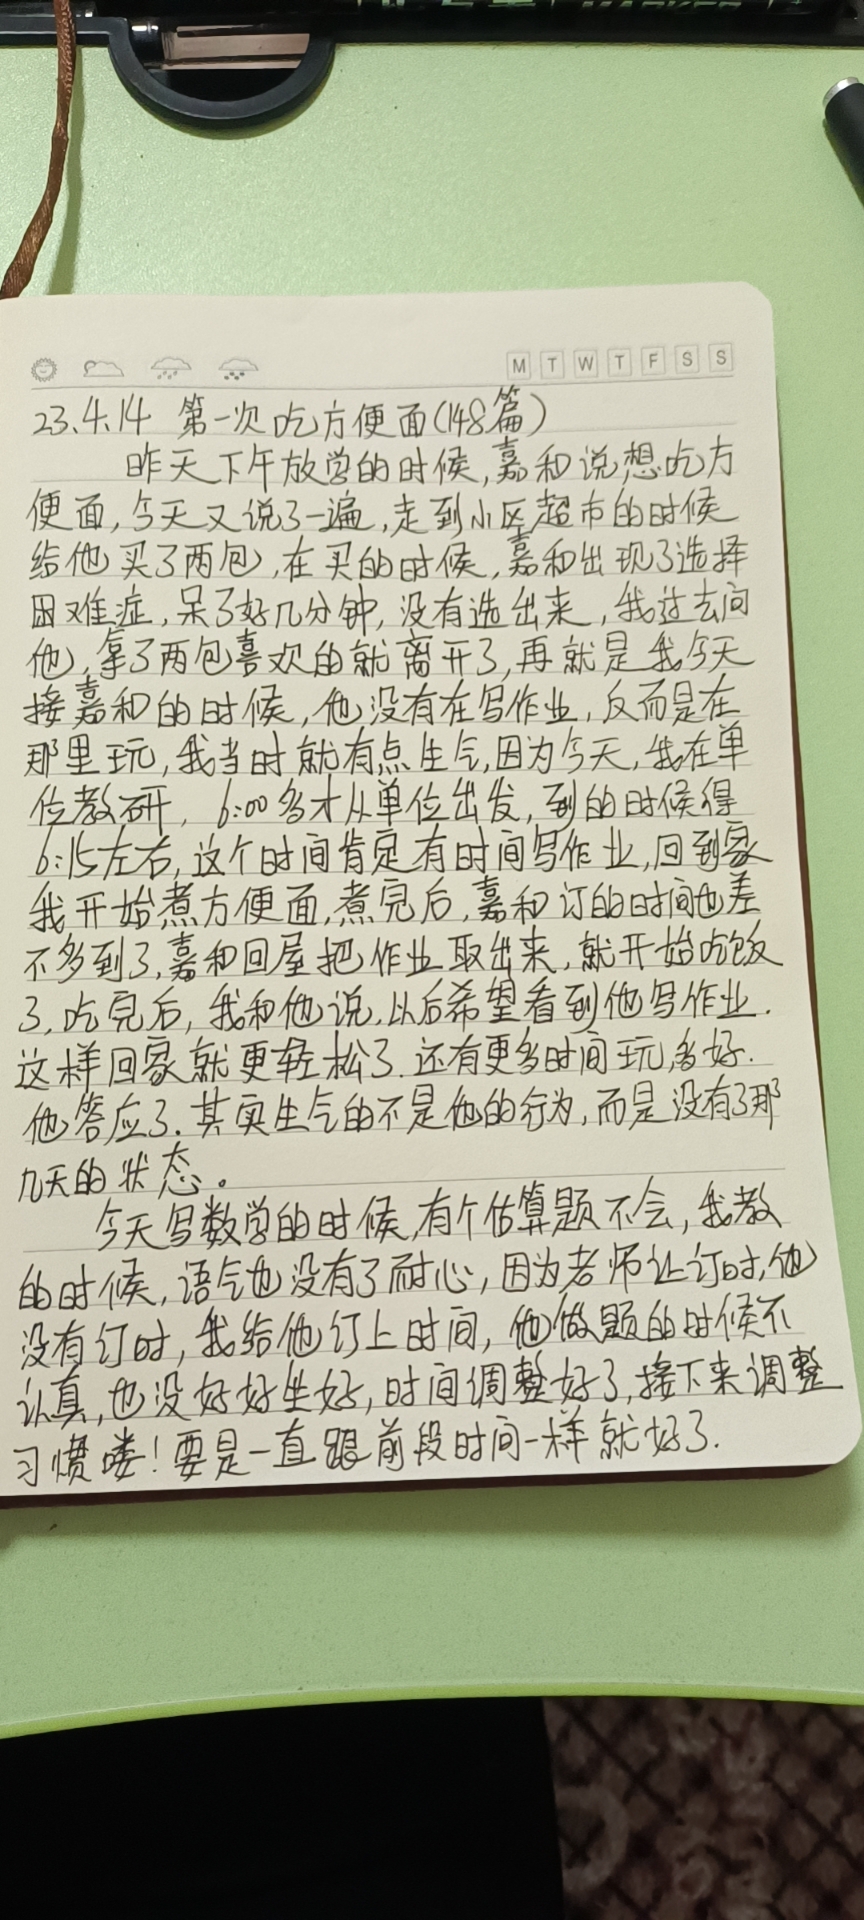 MARKER
M T W T F S S
23.4.14 第一次吃方便面(148篇)
昨天下午放学的时候,嘉和说想吃方
便面,今天又说了一遍,走到小区超市的时候
给他买了两包,在买的时候,嘉和出现了选择
困难症,呆了好几分钟,没有选出来,我过去问
他,拿了两包喜欢的就离开了,再就是我今天
接嘉和的时候,他没有在写作业,反而是在
那里玩,我当时就有点生气,因为今天,我在单
位教研,6:00多才从单位出发,到的时候得
6:15左右,这个时间肯定有时间写作业,回到家
我开始煮方便面,煮完后,嘉和订的时间也差
不多到了,嘉和回屋把作业取出来,就开始吃饭
了,吃完后,我和他说,以后希望看到他写作业.
这样回家就更轻松了.还有更多时间玩,多好.
他答应了.其实生气的不是他的行为,而是没有了那
几天的状态。
今天写数学的时候,有个估算题不会,我教
的时候,语气也没有了耐心,因为老师让订时,他
没有订时,我给他订上时间,他做题的时候不
认真,也没好好坐好,时间调整好了,接下来调整
习惯喽!要是一直跟前段时间一样就好了.